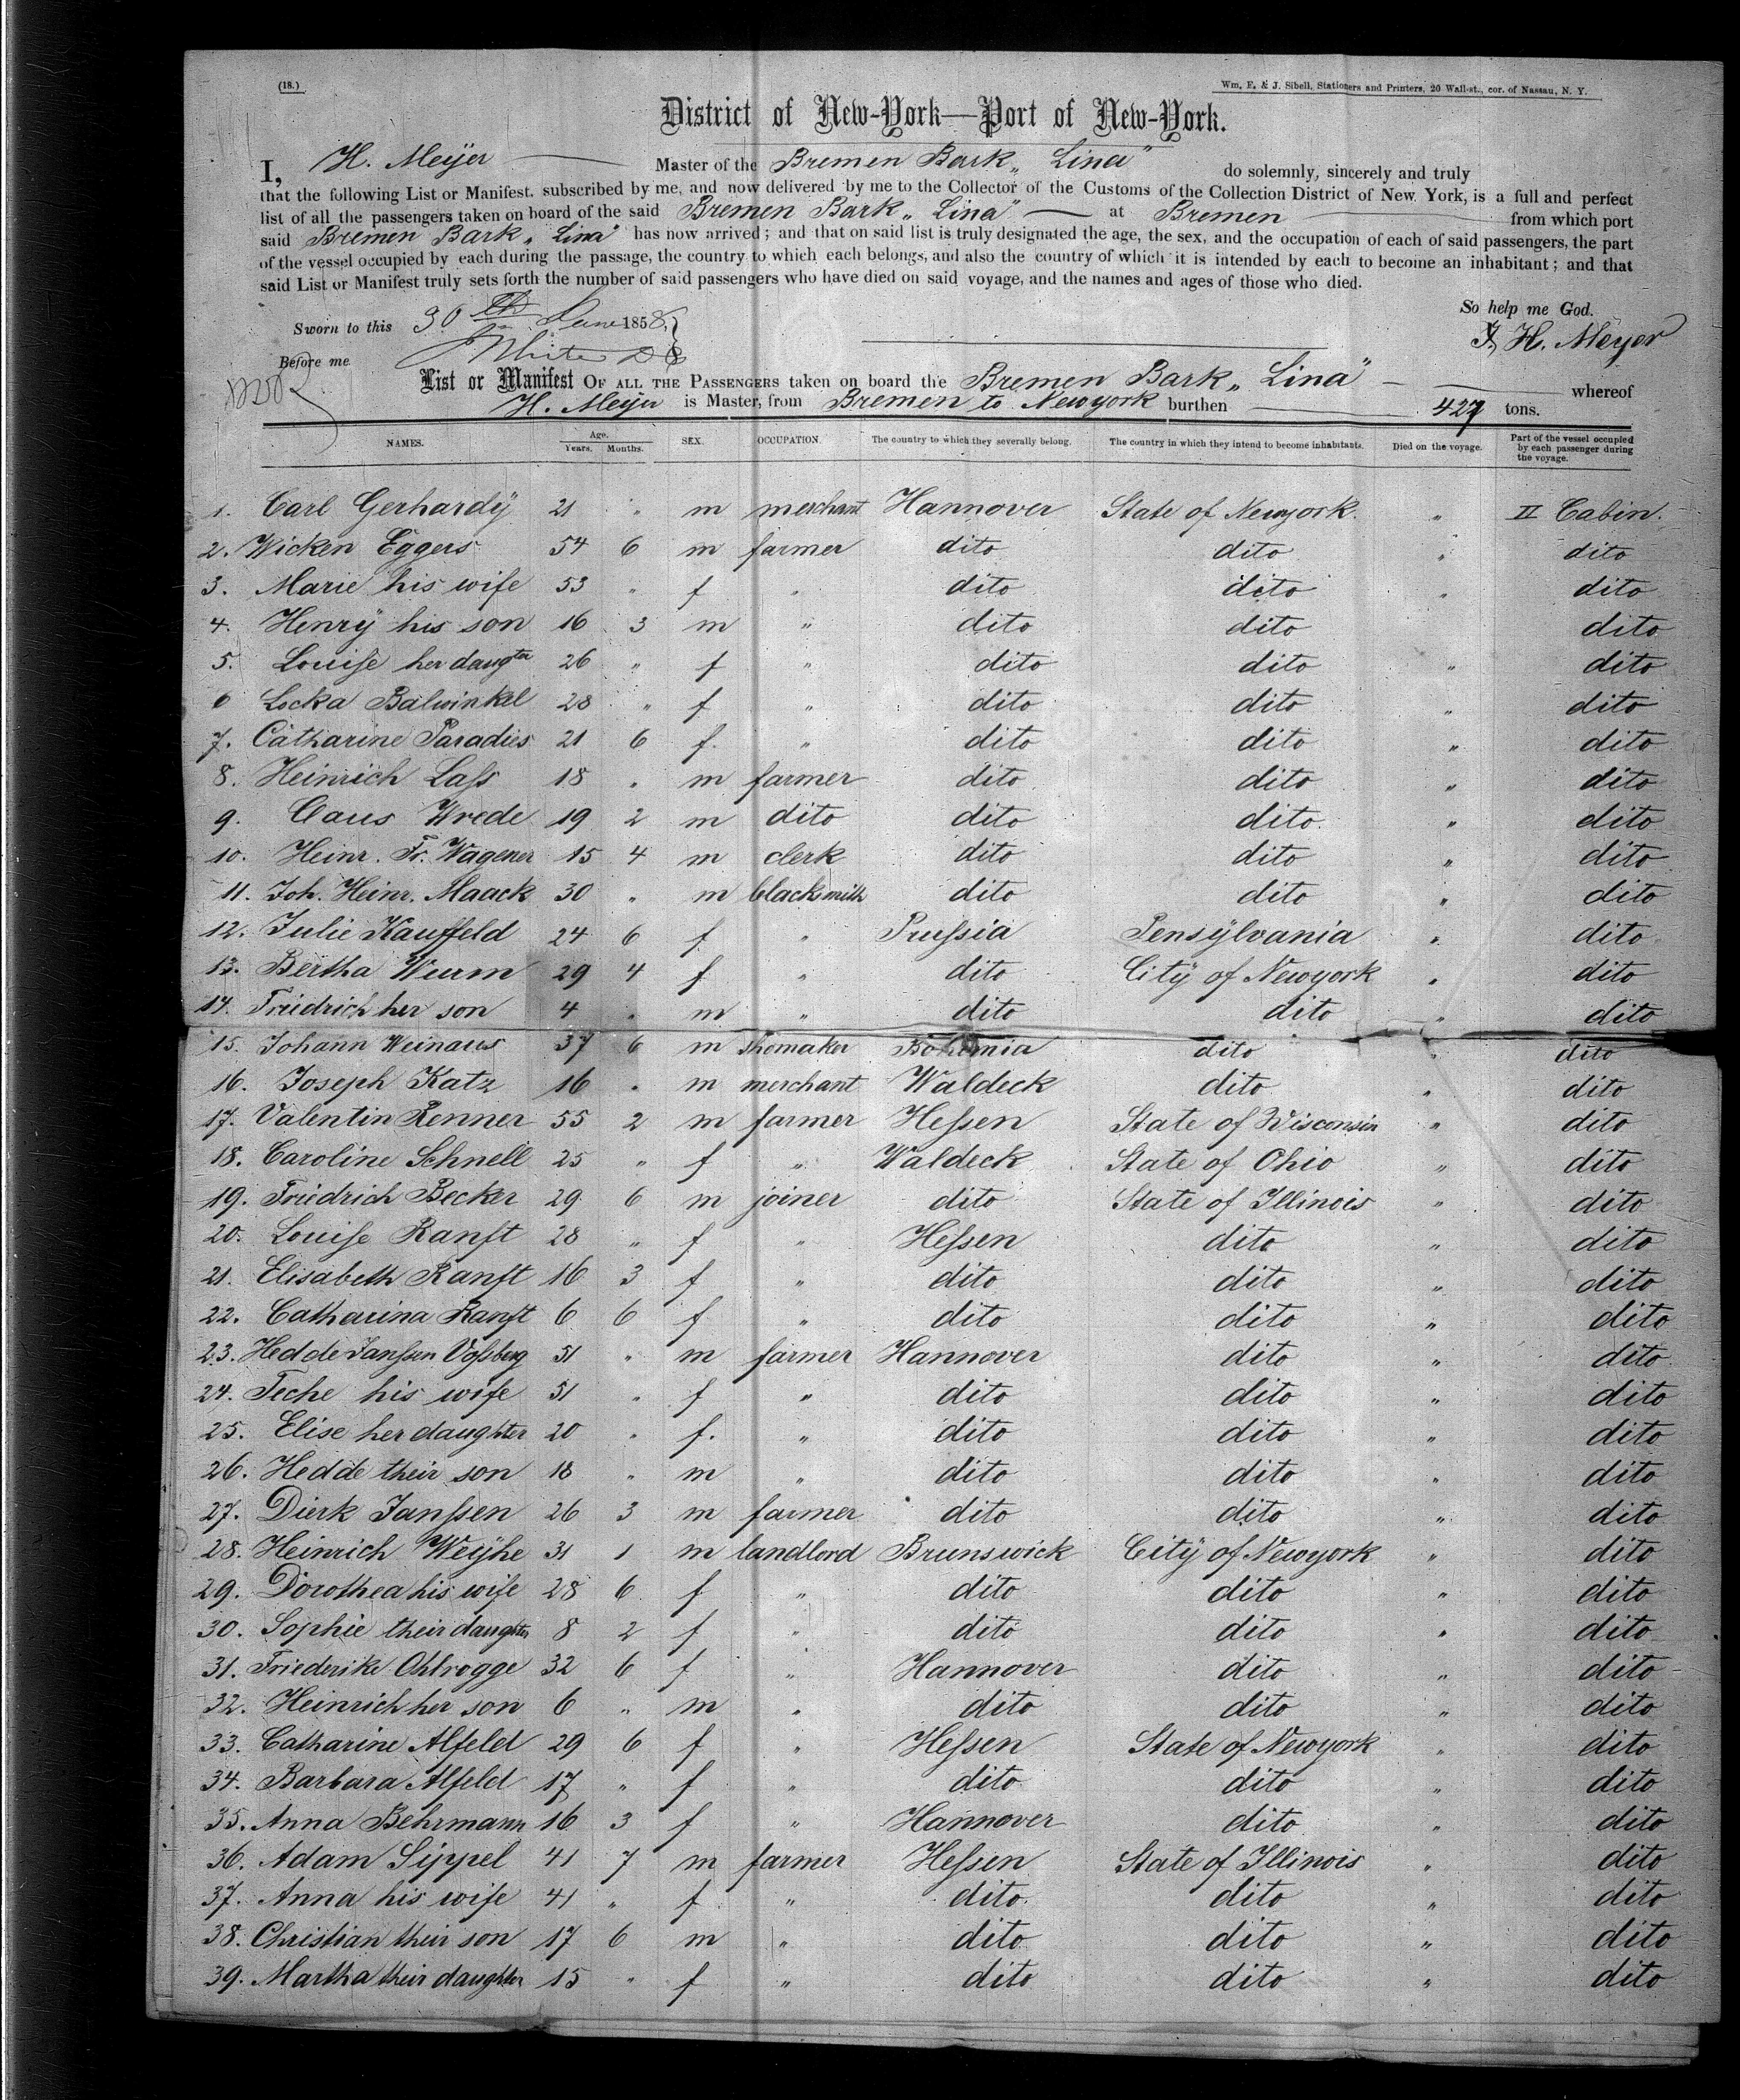 (18.)
Wm. F. & J. Sibell, Stationers and Printers, 20 Wall-st., cor. of Nassau, N. Y.
District of New-York—Port of New-York.
I, H. Meijer Master of the Bremen Bark „Lina" do solemnly, sincerely and truly
that the following List or Manifest, subscribed by me, and now delivered by me to the Collector of the Customs of the Collection District of New York, is a full and perfect
list of all the passengers taken on board of the said Bremen Bark „Lina" at Bremen from which port
said Bremen Bark „Lina" has now arrived; and that on said list is truly designated the age, the sex, and the occupation of each of said passengers, the part
of the vessel occupied by each during the passage, the country to which each belongs, and also the country of which it is intended by each to become an inhabitant; and that
said List or Manifest truly sets forth the number of said passengers who have died on said voyage, and the names and ages of those who died.
So help me God.
Sworn to this 30th June 1858,
H. Meyer
Before me White
List or Manifest OF ALL THE PASSENGERS taken on board the Bremen Bark „Lina" whereof
H. Meijer is Master, from Bremen to Newyork burthen 427 tons.
NAMES. Age. Years. Months. SEX. OCCUPATION. The country to which they severally belong. The country in which they intend to become inhabitants. Died on the voyage. Part of the vessel occupied by each passenger during the voyage.
1. Carl Gerhardÿ 21 " m merchant Hannover State of Newyork. " II Cabin.
2. Wicken Eggers 54 6 m farmer dito dito " dito
3. Marie his wife 53 " f " dito dito " dito
4. Henrÿ his son 16 3 m " dito dito dito
5. Louise her daugter 26 " f " dito dito " dito
6 Locka Balwinkel 28 " f " dito dito " dito
7. Catharine Paradies 21 6 f. " dito dito " dito
8. Heinrich Lass 18 " m farmer dito dito " dito
9. Claus Wrede 19 2 m dito dito dito " dito
10. Heinr. Fr. Wagener 15 4 m clerk dito dito " dito
11. Joh. Heinr. Maack 30 " m blacksmith dito dito " dito
12. Julie Kauffeld 24 6 f " Prussia Pensÿlvania " dito
13. Bertha Wurm 29 4 f " dito Citÿ of Newyork " dito
14. Friedrich her son 4 " m " dito dito " dito
15. Johann Weinaus 37 6 m shomaker Bohemia dito " dito
16. Joseph Katz 16 " m merchant Waldeck dito " dito
17. Valentin Renner 55 2 m farmer Hessen State of Wisconsin " dito
18. Caroline Schnell 25 " f " Waldeck State of Ohio " dito
19. Friedrich Becker 29 6 m joiner dito State of Illinois " dito
20. Louise Ranft 28 " f " Hessen dito " dito
21. Elisabeth Ranft 16 3 f " dito dito " dito
22. Catharina Ranft 6 6 f " dito dito " dito
23. Hedde Janssen Vossberg 51 " m farmer Hannover dito " dito
24. Teche his wife 51 " f " dito dito " dito
25. Elise her daughter 20 " f. " dito dito " dito
26. Hedde their son 18 " m " dito dito " dito
27. Dierk Janssen 26 3 m farmer dito dito " dito
28. Heinrich Weÿhe 31 1 m landlord Brunswick Citÿ of Newyork " dito
29. Dorothea his wife 28 6 f " dito dito " dito
30. Sophie their daughter 8 2 f " dito dito " dito
31. Friederike Ohlrogge 32 6 f " Hannover dito " dito
32. Heinrich her son 6 " m " dito dito " dito
33. Catharine Alfeld 29 6 f " Hessen State of Newyork " dito
34. Barbara Alfeld 17 " f " dito dito " dito
35. Anna Behrmann 16 3 f " Hannover dito " dito
36. Adam Sippel 41 7 m farmer Hessen State of Illinois " dito
37. Anna his wife 41 " f " dito dito " dito
38. Christian their son 17 6 m " dito dito " dito
39. Martha their daughter 15 " f " dito dito " dito